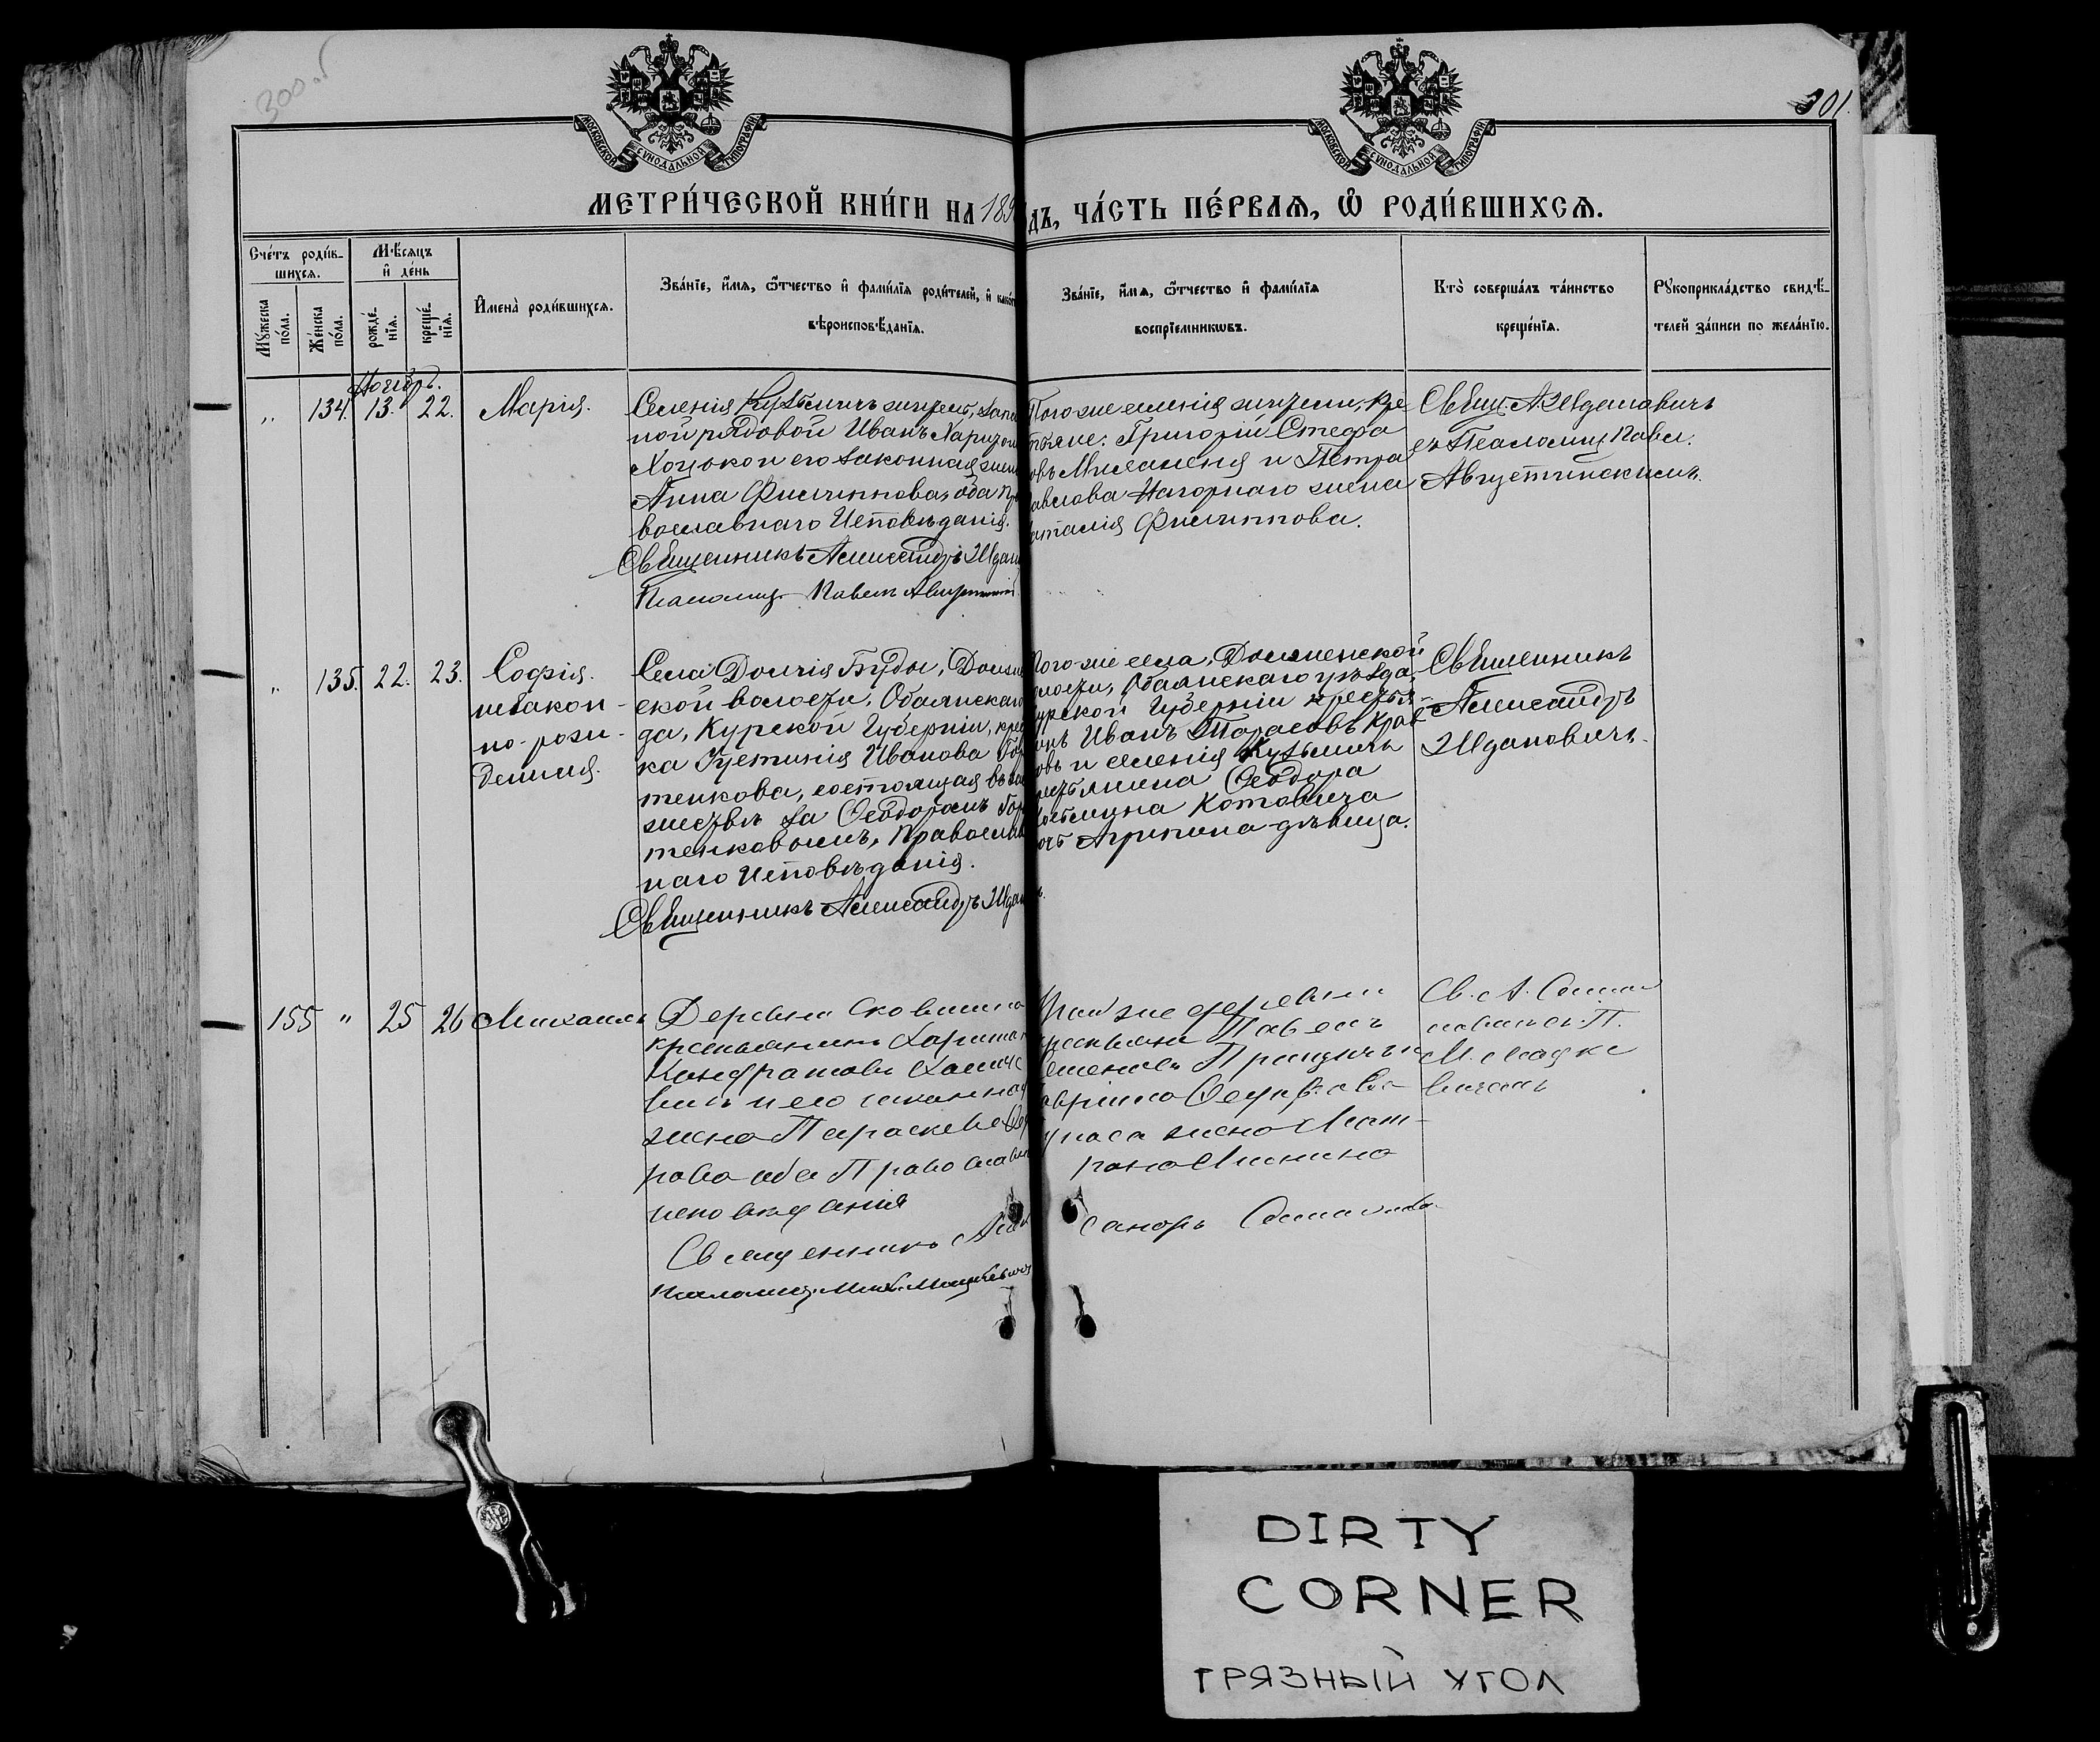 300 об
301.
МОСКОВСКОЙ СѴНОДАЛЬНОЙ ТИПОГРАФІИ
МОСКОВСКОЙ СѴНОДАЛЬНОЙ ТИПОГРАФІИ
МЕТРИ́ЧЕСКОЙ КНИ́ГИ НА 189
ДЪ, ЧА́СТЬ ПЕ́РВАЯ, Ѽ РОДИ́ВШИХСЯ.
Сче́тъ роди́в-
шихся.
Мѣ́сяцъ
и҆ де́нь
Мꙋ́жеска по́ла.
Же́нска по́ла.
рожде́-нїѧ.
креще́-нїѧ.
И҆мена̀ роди́вшихся.
Зва́нїе, и҆́мя, ѻ҆́тчество и҆ фамн́лїя роди́телей, и҆ како́г
вѣроисповѣ́данїя.
Зва́нїе, и҆́мя, ѻ҆́тчество и҆ фами́лїя
воспрїе́мниковъ.
Кто̀ соверша́лъ та́инство
креще́нїя.
Рꙋкоприкла́дство свидѣ́-
телей за́писи по жела́нїю.
Ноябрь.
„ 134. 13. 22. Марія.
Селенія Кузьмичъ житель, запа
ной рядовой Иванъ Харитон
Хоцько и его законная жен
Анна Филиппова, оба пр
вославнаго Исповѣданія.
Священникъ Александръ Ждан
Псаломщ. Павелъ Августинскій.
Того-же селенія жители, кре
тьяне: Григорій Стефа
овъ Миланеня и Петра
авлова Нагорнаго жена
аталія Филиппова.
Свящ. А. Ждановичъ
съ Псаломщ. Павл.
Августинскимъ.
„ 135. 22. 23. Софія.
незакон-
но-рож-
денная.
Села Долгія Буды, Долже
ской волости, Обоянскаго
да, Курской Губерніи, крес
ка Устинія Иванова Бор
тенкова, состоящая въ за
жествѣ за Ѳеодоромъ Бор
тенковымъ, Православ
наго Исповѣданія.
Священникъ Александръ Ждан
Того-же села, Долженской
олости, Обоянскаго уѣзда,
урской Губерніи крестья-
инъ Иванъ Тарасовъ
овъ и селенія Кузьмичъ
рестьянина Ѳеодора
Котовича
очь Агрипина-дѣвица.
Священникъ
Александръ
Ждановичъ.
155 „ 25 26 Михаилъ
Деревни
крестьянинъ Харитон
Кондратовъ
вичъ и его законная
жена Параскева
рова оба Православн
исповѣданія
Священникъ Алек
псаломщ. Мих.
Той же деревни
рестьяне Павелъ
Семеновъ
жена Мат-
рона
сандръ
Св. А.
П.
М.
вичемъ
DIRTY
CORNER
ГРЯЗНЫЙ УГОЛ